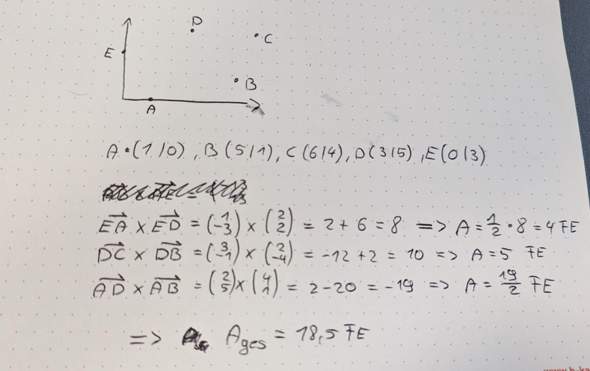 D
C
E
B
A
A(1|0), B(5|1), C(6|4), D(3|5), E(0|3)
EA→ × ED→ = (1 -3) × (2 2) = 2 + 6 = 8 => A = 1/2 · 8 = 4 FE
DC→ × DB→ = (3 -1) × (2 -4) = -12 + 2 = 10 => A = 5 FE
AD→ × AB→ = (2 5) × (4 1) = 2 - 20 = -19 => A = 19/2 FE
=> Ages = 18,5 FE